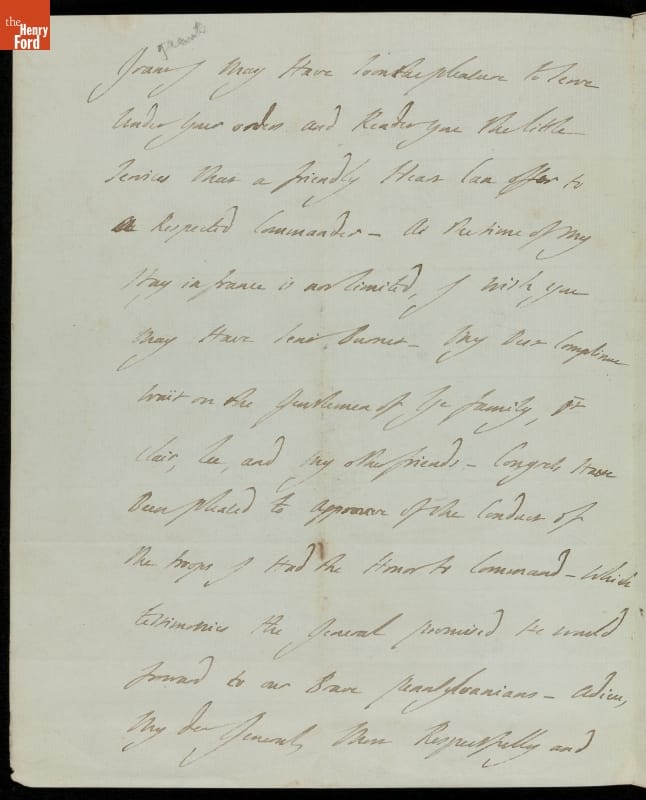 the
Henry
Ford
grant
I may Have soon the pleasure to serve
Under your orders and Render you the little
Services that a friendly Heart Can offer to
a Respected Commander – As the time of My
stay in france is not limited, I wish you
May Have sent Burnet – My Best Compliments
Wait on the Gentlemen of Ye family, St
clair, lee, and My other friends – Congress Have
Been pleased to approve of the Conduct of
the troops I Had the Honor to Command – Which
testimonies the General promised He would
forward to our Brave pennsylvanians – Adieu,
My dear General, Most Respectfully and